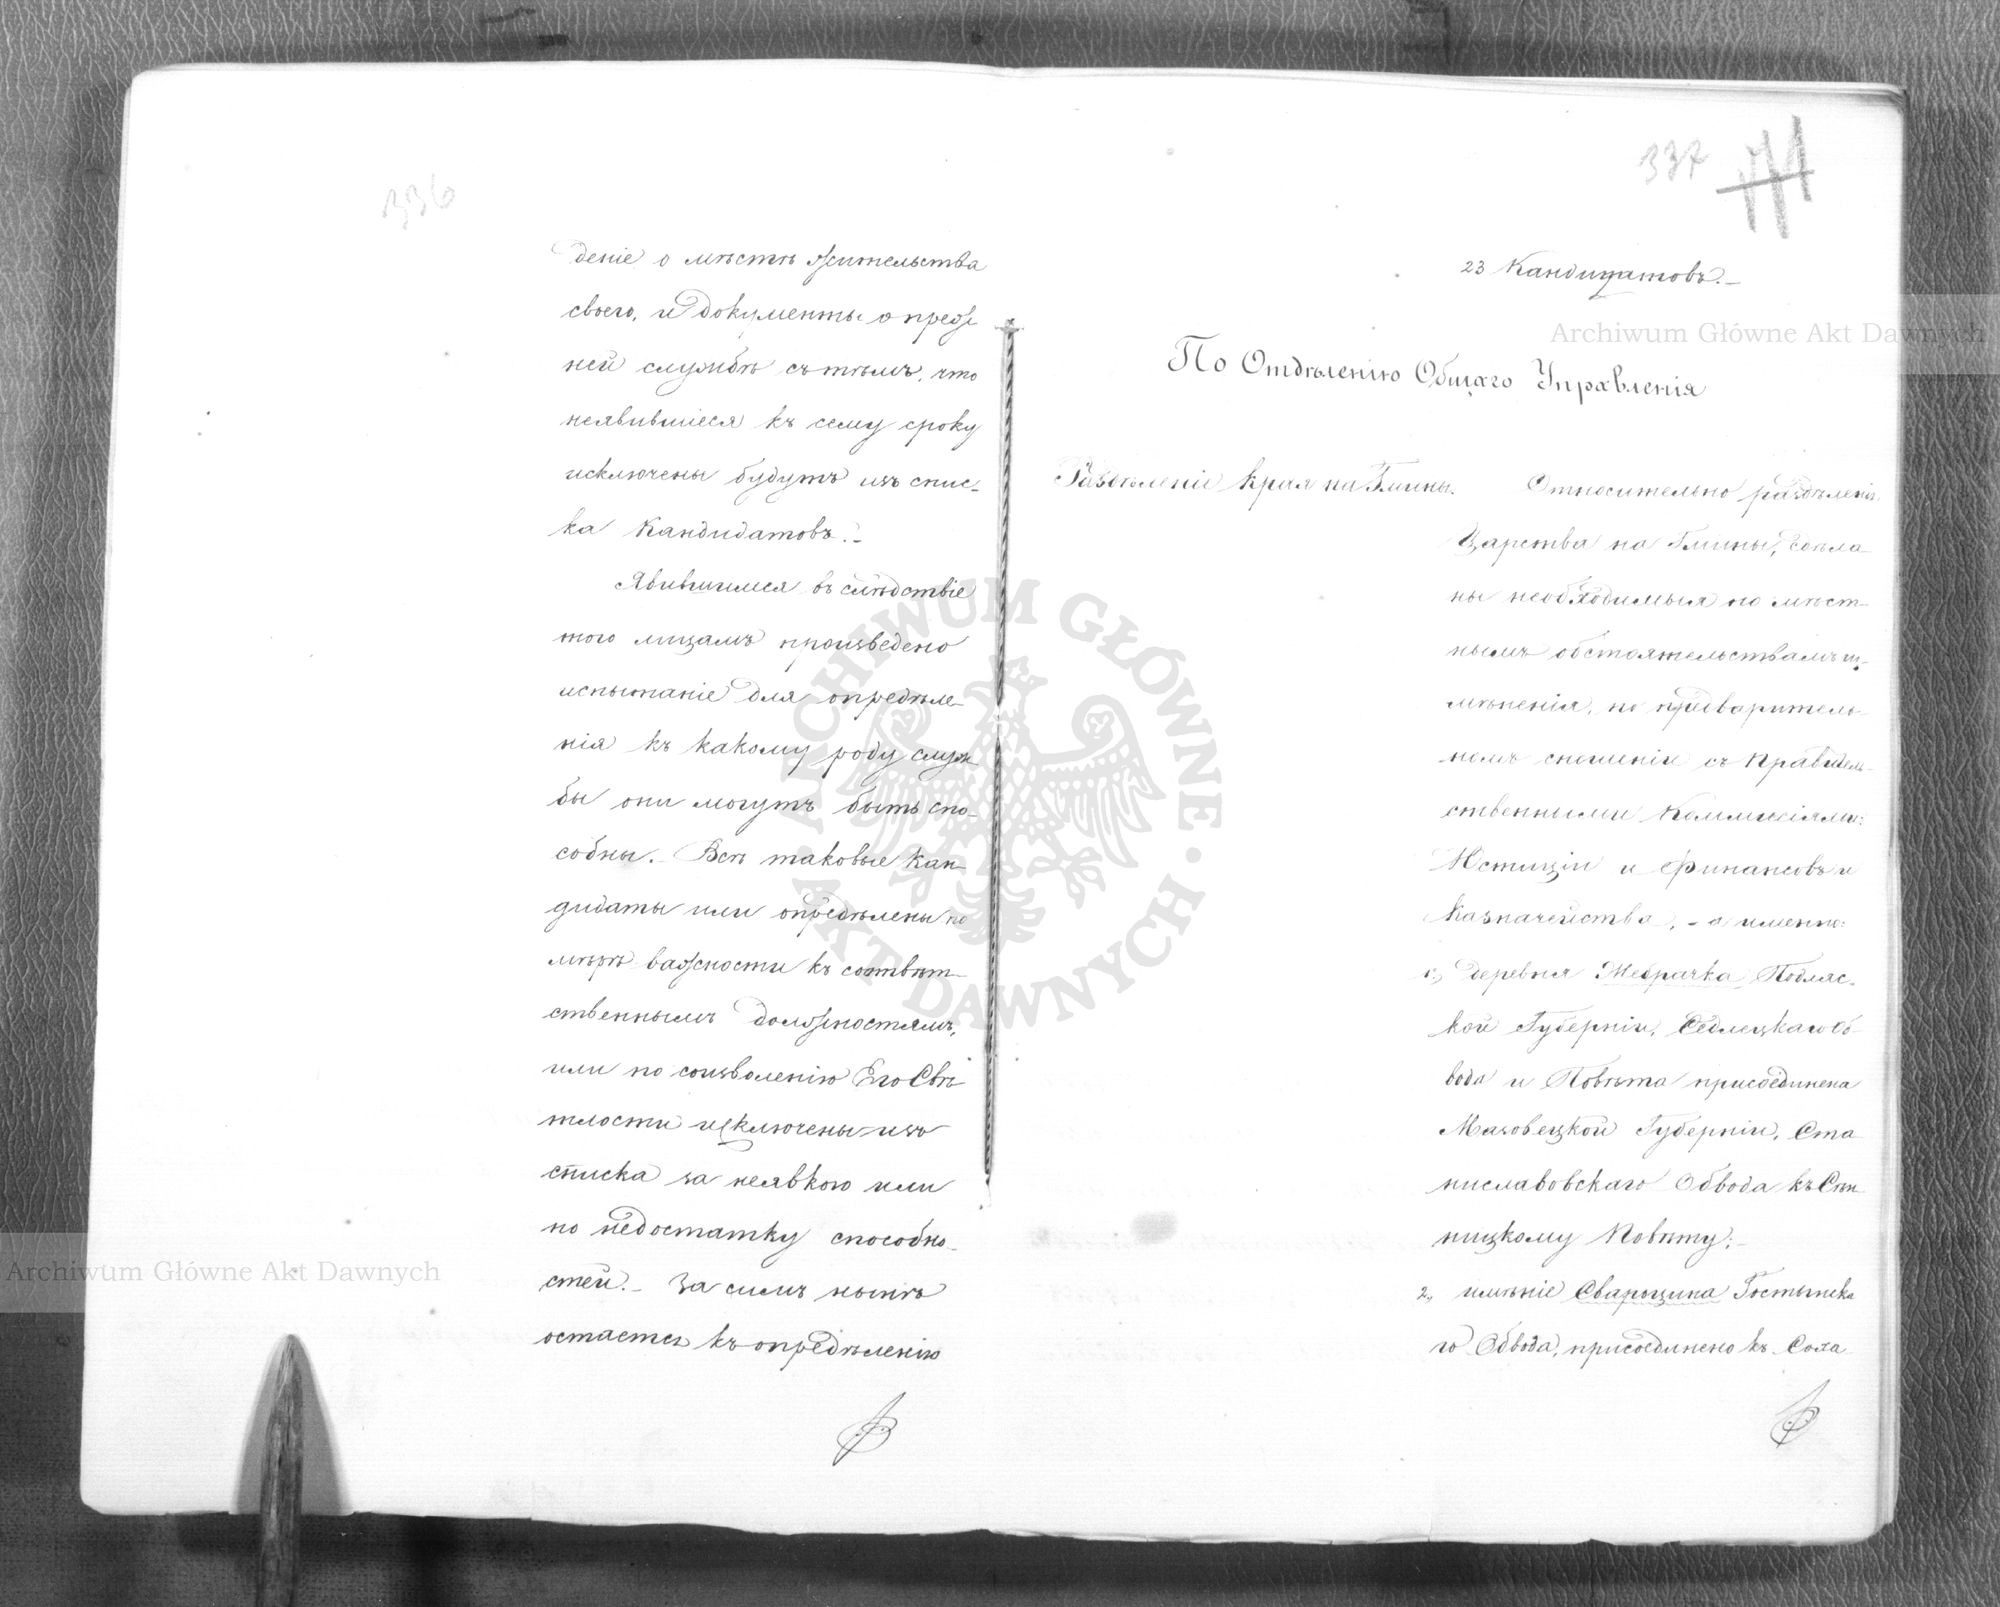 336
деніе о мѣстѣ жительства
своего, и документы о преж
ней службѣ съ тѣмъ, что
неявившіеся къ сему сроку
исключены будутъ изъ спис-
ка Кандидатовъ.-
Явившимся въ слѣдствіе
того лицамъ произведено
испытаніе для опредѣле-
нія къ какому роду служ
бы они могутъ быть спо-
собны.- Всѣ таковые Кан-
дидаты или опредѣлены по
мѣрѣ важности къ соотвѣт-
ственнымъ должностямъ,
или по соизволенію Его Свѣ
тлости исключены изъ
списка за неявкою или
по недостатку способно-
стей.- За симъ нынѣ
остается къ опредѣленію
337
23 Кандидатовъ.-
По Отдѣленію Общаго Управленія
Раздѣленіе края на Гмины.
Относительно раздѣленія
Царства на Гмины, сдѣла
ны необходимыя по мѣст-
нымъ обстоятельствамъ из-
мѣненія, по предваритель-
номъ сношеніи съ Правитель-
ственными Коммисіями:
Юстиціи и Финансовъ и
Казначейства, - а именно:
1., Деревня Жебрачка Подляс-
кой Губерніи, Седлецкаго Об-
вода и Повѣта присоединена
Мазовецкой Губерніи, Ста
ниславовскаго Обвода къ Сѣн
ницкому Повѣту;-
2., имѣніе Сварыщина Гостынска
го Обвода, присоединено къ Соха-
Archiwum Główne Akt Dawnych
Archiwum Główne Akt Dawnych
ARCHIWUM GŁÓWNE · AKT DAWNYCH ·